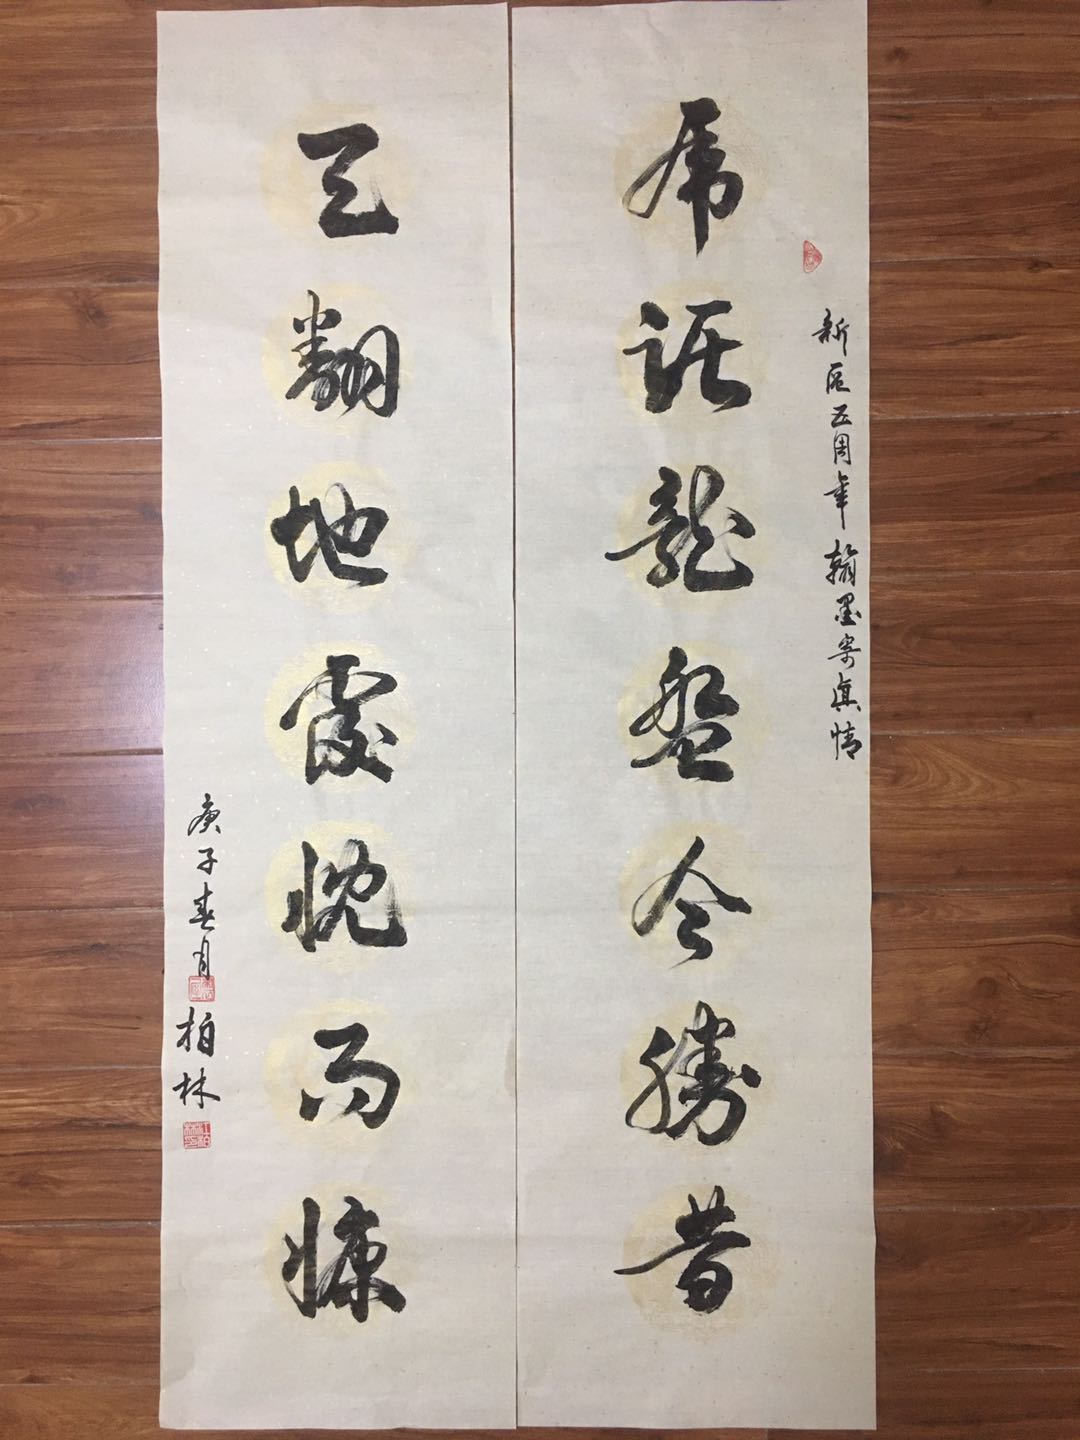 新区五周年翰墨寄真情
虎踞龍盘今勝昔
天翻地覆慨而慷
庚子春月柏林